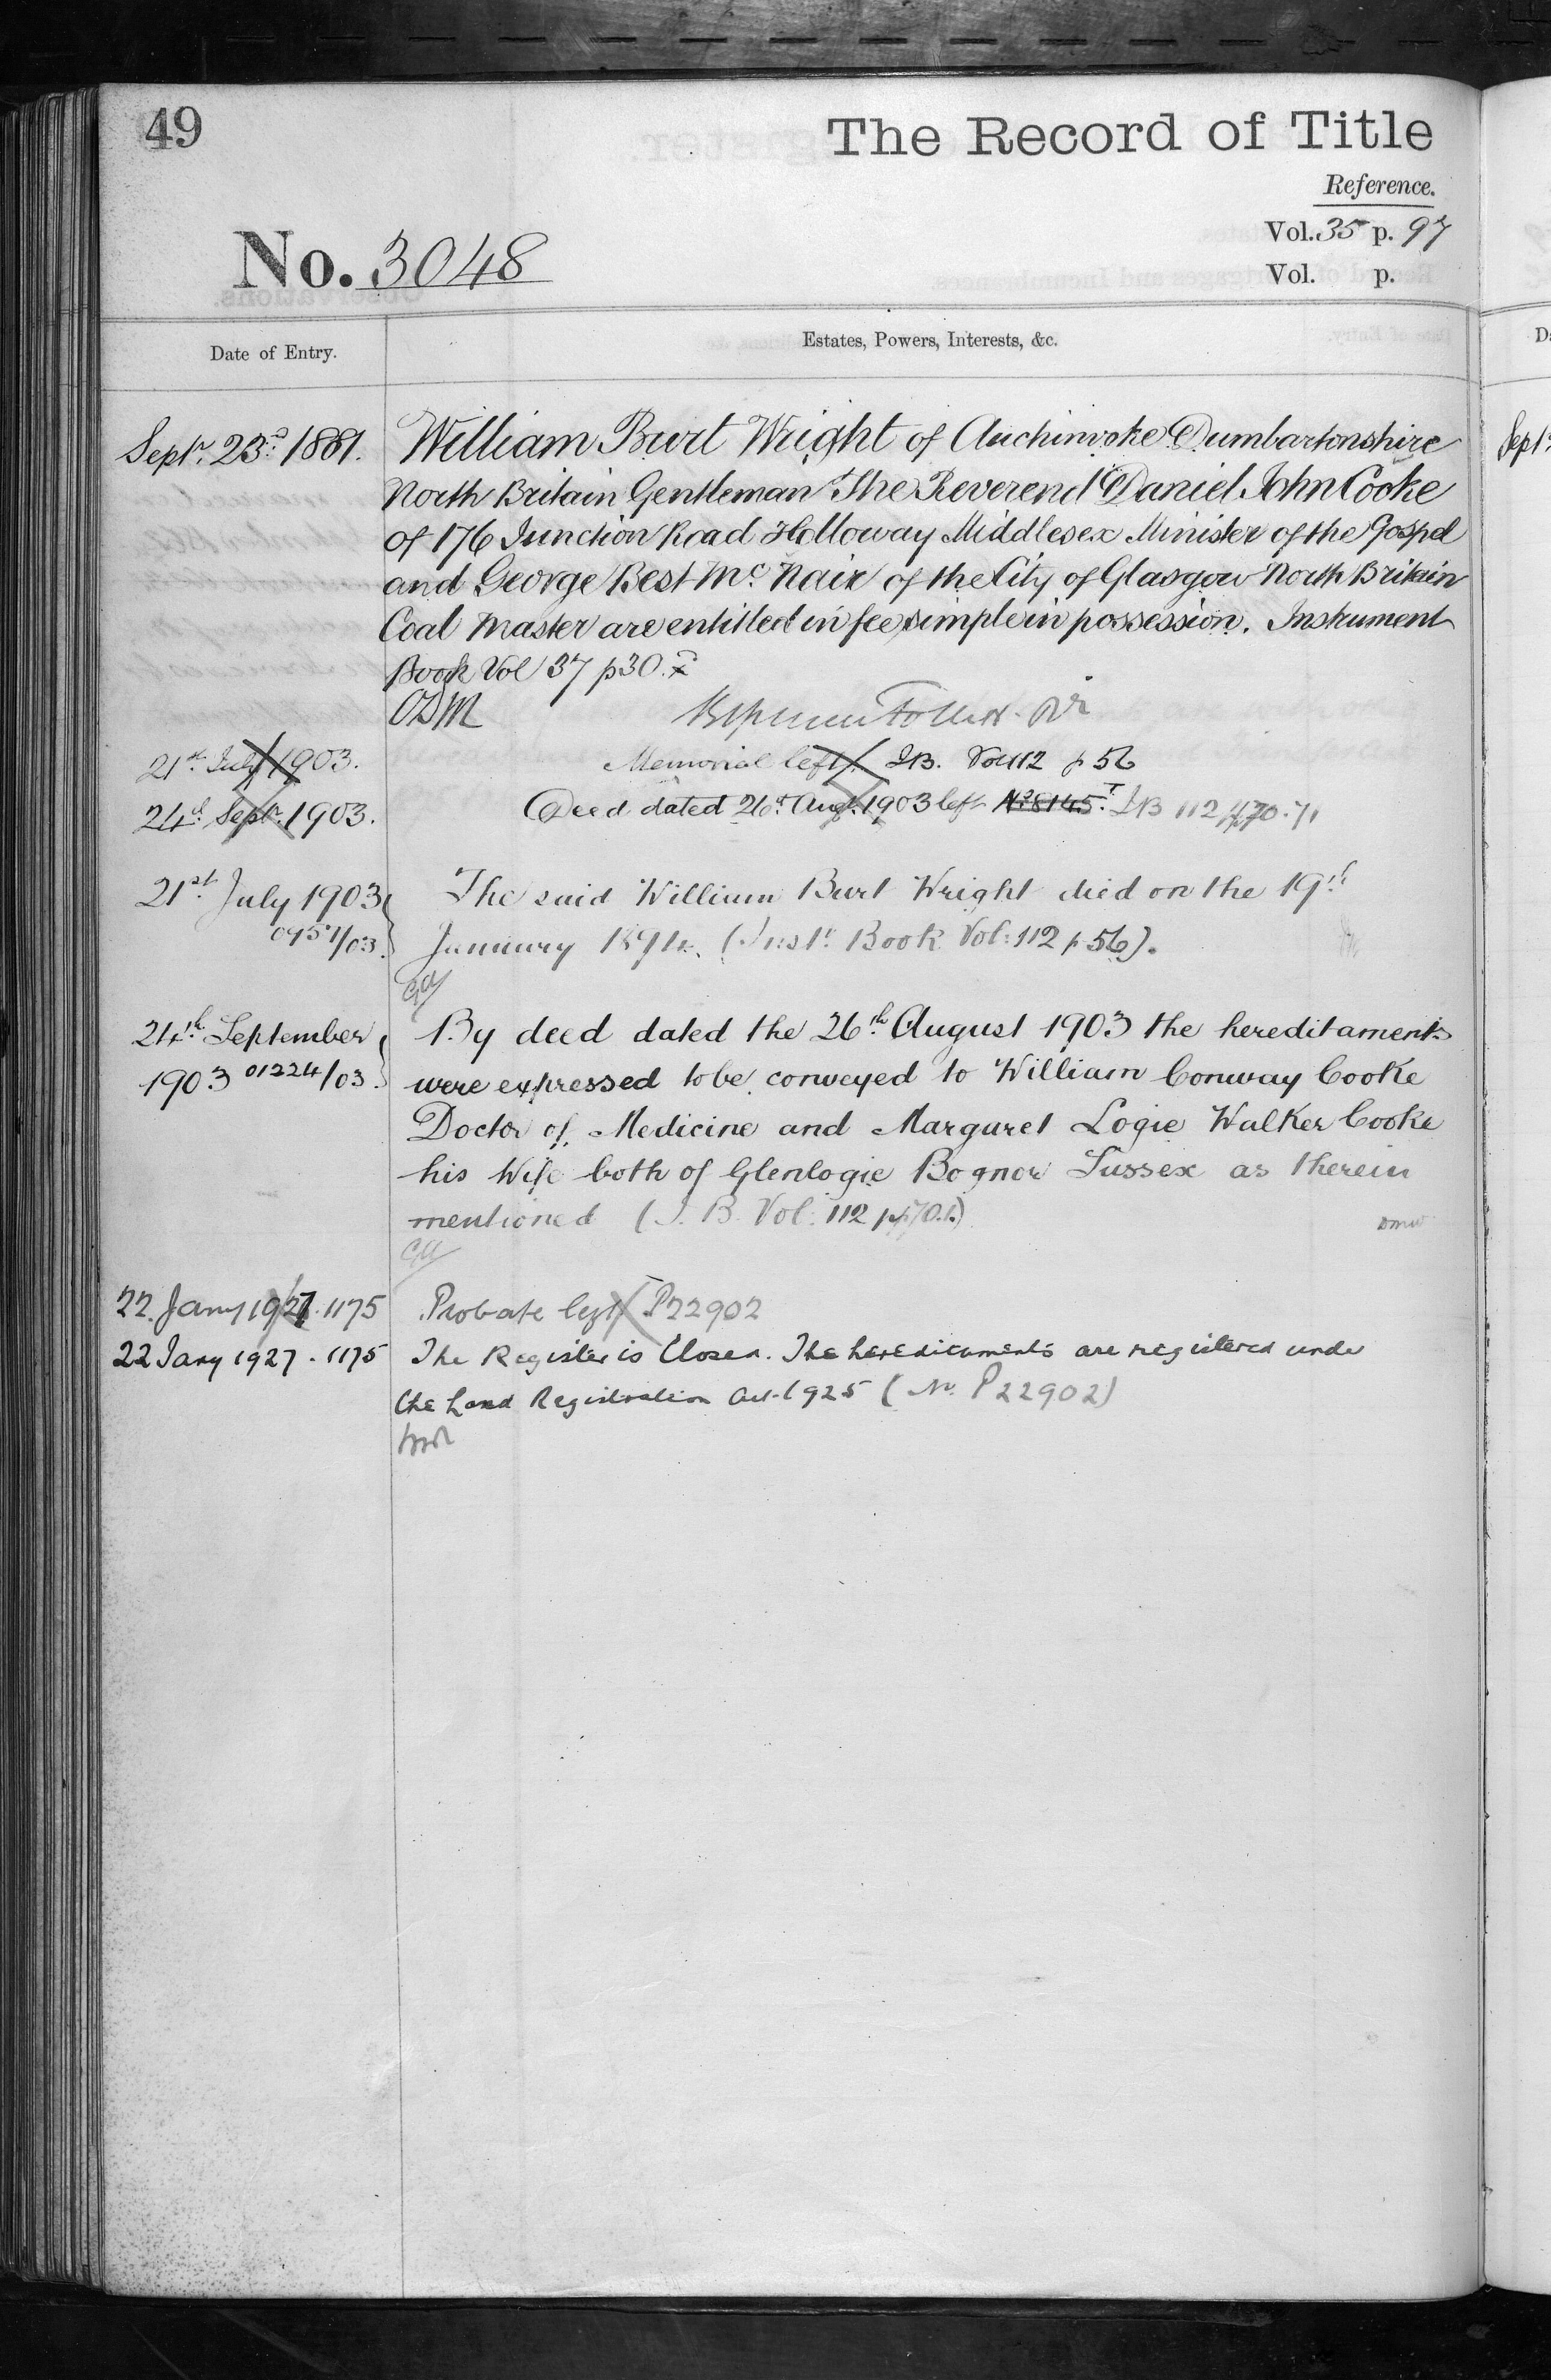 49
The Record of Title
Reference.
Vol. 35 p. 97
No. 3048
Vol. p.
Date of Entry.
Estates, Powers, Interests, &c.
Septr. 23rd 1881.
William Burt Wright of Auchinvoke Dumbartonshire
North Britain Gentleman The Reverend Daniel John Cooke
of 176 Junction Road Holloway Middlesex Minister of the Gospel
and George Best Mc. Nair of the City of Glasgow North Britain
Coal Master are entitled in fee simple in possession. Instrument
Book Vol 37 p30.
21st July 1903. Memorial left. I.B. Vol 112 p 56
24th Sept. 1903. Deed dated 26th Augt. 1903 left No 8145 I.B 112 pp70.71
21st July 1903 The said William Burt Wright died on the 19th
0451/03. January 1894. (Instt. Book Vol: 112 p 56).
24th September By deed dated the 26th August 1903 the hereditaments
1903 01224/03. were expressed to be conveyed to William Conway Cooke
Doctor of Medicine and Margaret Logie Walker Cooke
his Wife both of Glenlogie Bognor Sussex as therein
mentioned (I. B. Vol: 112 pp70.1.)
22. Jany 1927. 1175 Probate left P22902
22 Jany 1927. 1175 The Register is Closed. The hereditaments are registered under
the Land Registration Act 1925 (No. P22902)
Sept: